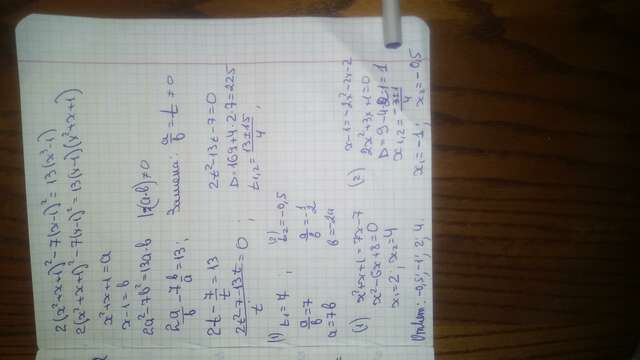 2(x²+x+1)²-7(x-1)²=13(x³-1)
2(x²+x+1)²-7(x-1)²=13(x-1)(x²+x+1)
x²+x+1=a
x-1=b
2a²-7b²=13a·b |:(a·b)≠0
2a/b - 7b/a = 13; Замена: a/b = t ≠0
2t - 7/t = 13 2t²-13t-7=0
(2t²-7-13t)/t = 0; D=169+4·2·7=225
t₁,₂ = (13±15)/4;
(1) t₁=7; (2) t₂=-0,5
a/b=7 a/b=-1/2
a=7b b=-2a
(1) x²+x+1=7x-7 (2) x-1=-2x²-2x-2
x²-6x+8=0 2x²+3x+1=0
x₁=2; x₂=4 D=9-4·2·1=1
x₁,₂=(-3±1)/4
Ответ: -0,5; -1; 2; 4. x₁=-1; x₂=-0,5